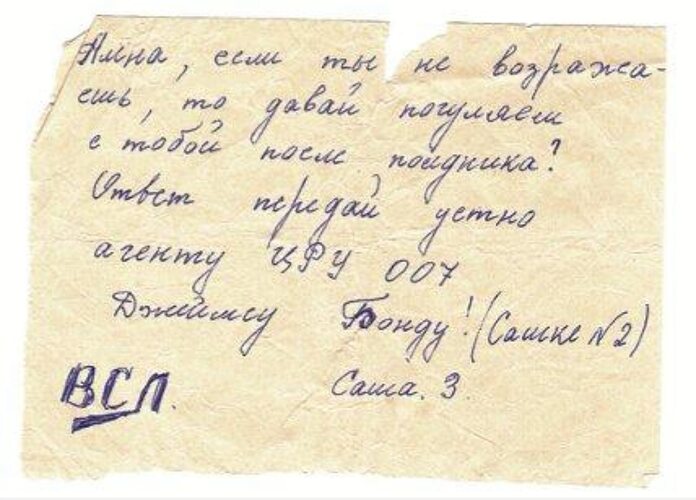 Ална, если ты не возража-
ешь, то давай погуляем
с тобой после полдника?
Ответ передай устно
агенту ЦРУ 007
Джеймсу Бонду! (Сашке №2)
Саша. З.
ВСЛ.